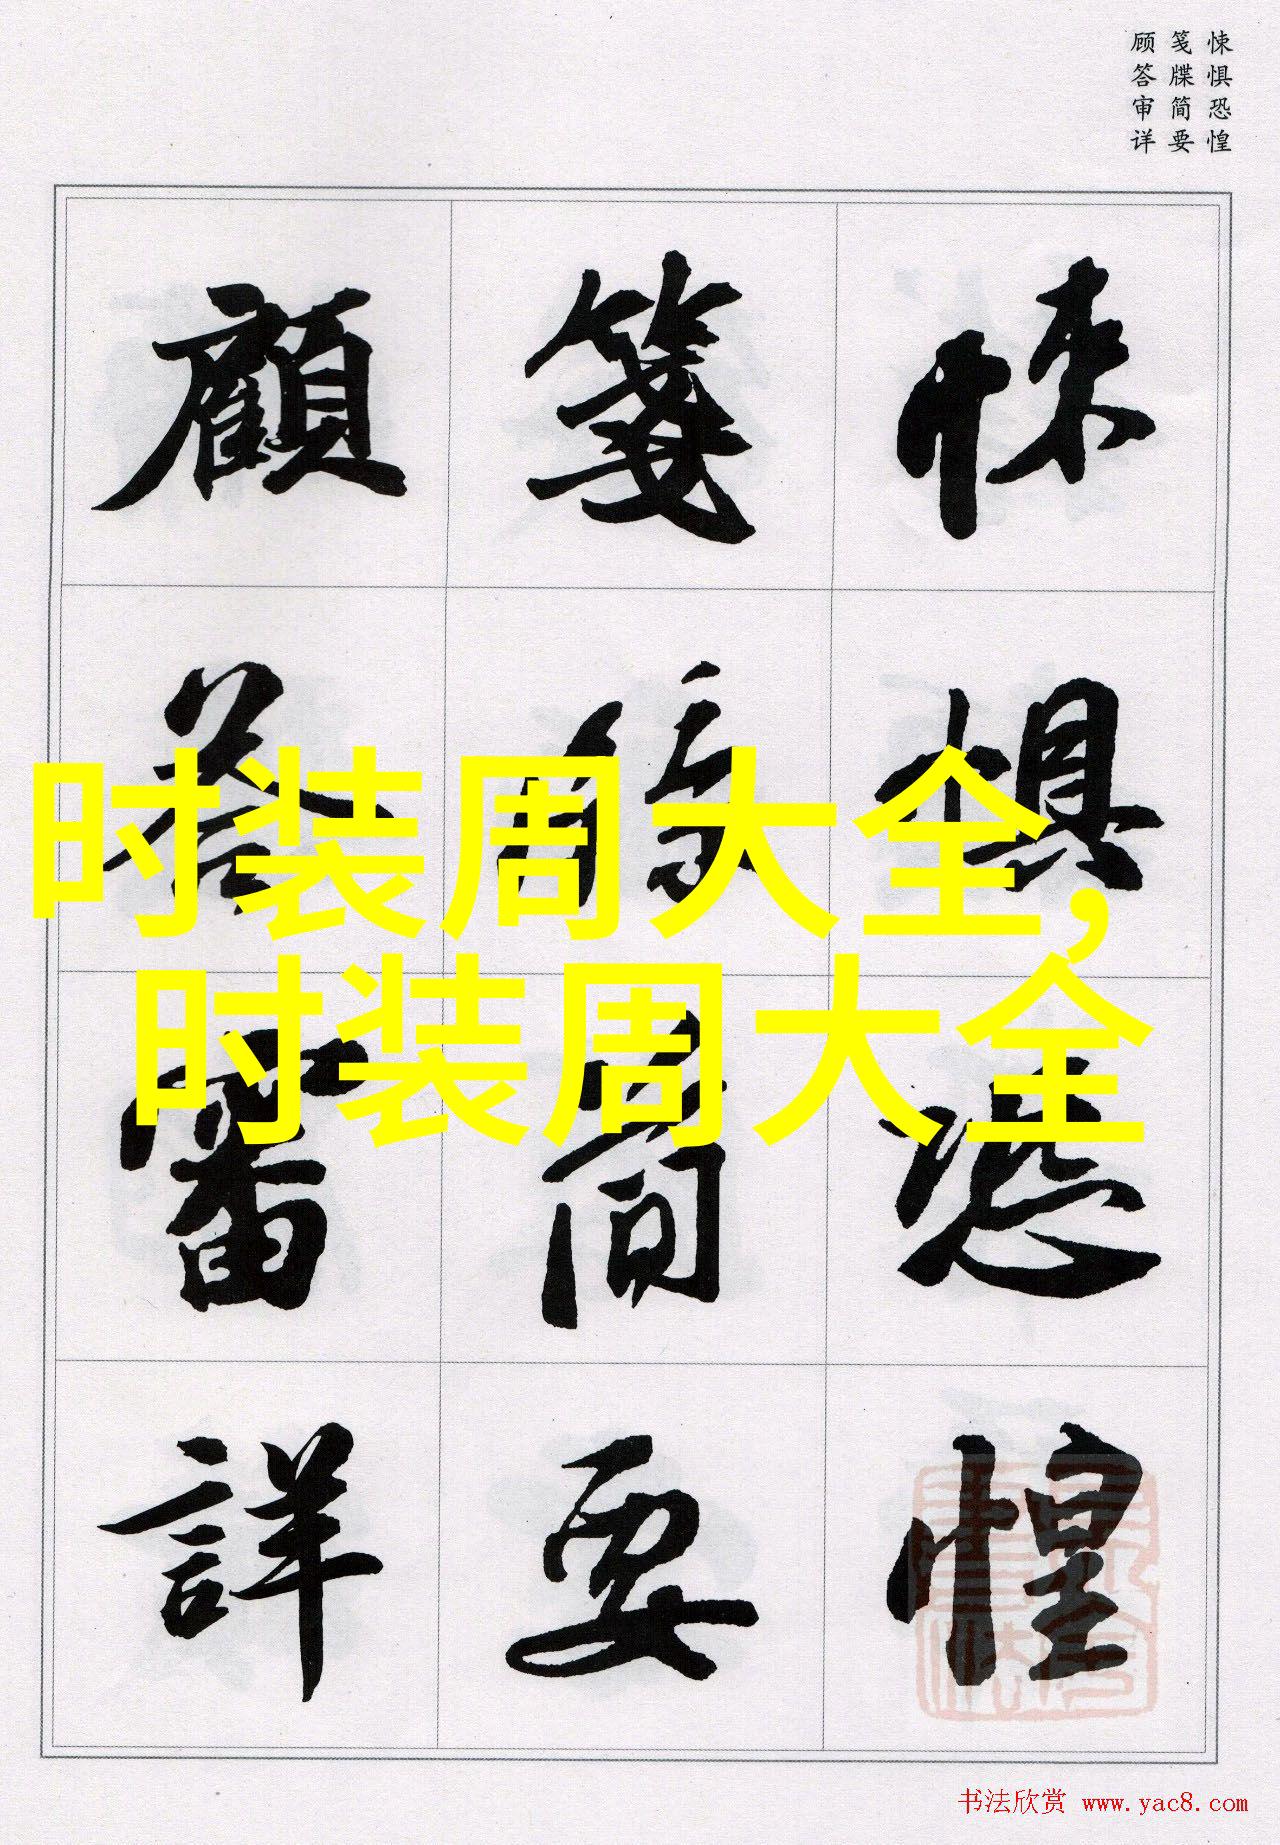 悚惧恐惶
笺牒简要
顾答审详
悚惧恐惶
箋牒簡要
顧答審詳
时装周大全,
时装周大全
书法欣赏 www.yac8.com